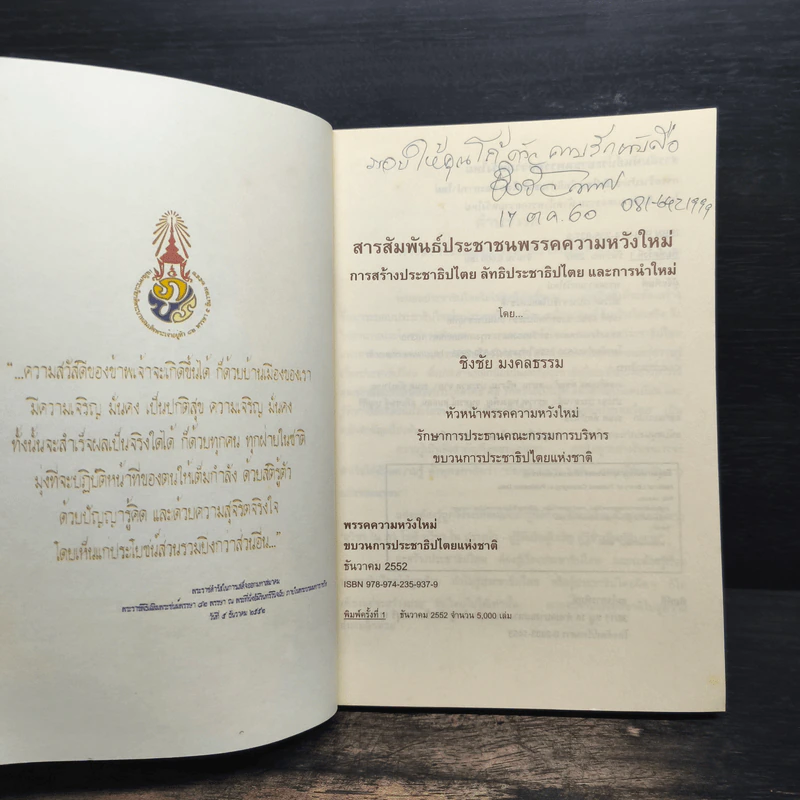 "...ความสวัสดีของข้าพเจ้าจะเกิดขึ้นได้ ก็ด้วยบ้านเมืองของเรา
มีความเจริญ มั่นคง เป็นปกติสุข ความเจริญ มั่นคง
ทั้งนั้นจะสำเร็จผลเป็นจริงได้ ก็ด้วยทุกคน ทุกฝ่ายในชาติ
มุ่งที่จะปฏิบัติหน้าที่ของตนให้เต็มกำลัง ด้วยสติรู้ตัว
ด้วยปัญญารู้คิด และด้วยความสุจริตจริงใจ
โดยเห็นแก่ประโยชน์ส่วนรวมยิ่งกว่าส่วนอื่น..."
พระราชดำรัสในการเสด็จออกมหาสมาคม
วันที่ ๕ ธันวาคม ๒๕๕๒
มอบให้คุณ
๑๗ ต.ค. 60
สารสัมพันธ์ประชาชนพรรคความหวังใหม่
การสร้างประชาธิปไตย ลัทธิประชาธิปไตย และการนำใหม่
โดย...
ชิงชัย มงคลธรรม
หัวหน้าพรรคความหวังใหม่
รักษาการประธานคณะกรรมการบริหาร
ขบวนการประชาธิปไตยแห่งชาติ
พรรคความหวังใหม่
ขบวนการประชาธิปไตยแห่งชาติ
ธันวาคม 2552
ISBN 978-974-235-937-9
พิมพ์ครั้งที่ 1 ธันวาคม 2552 จำนวน 5,000 เล่ม